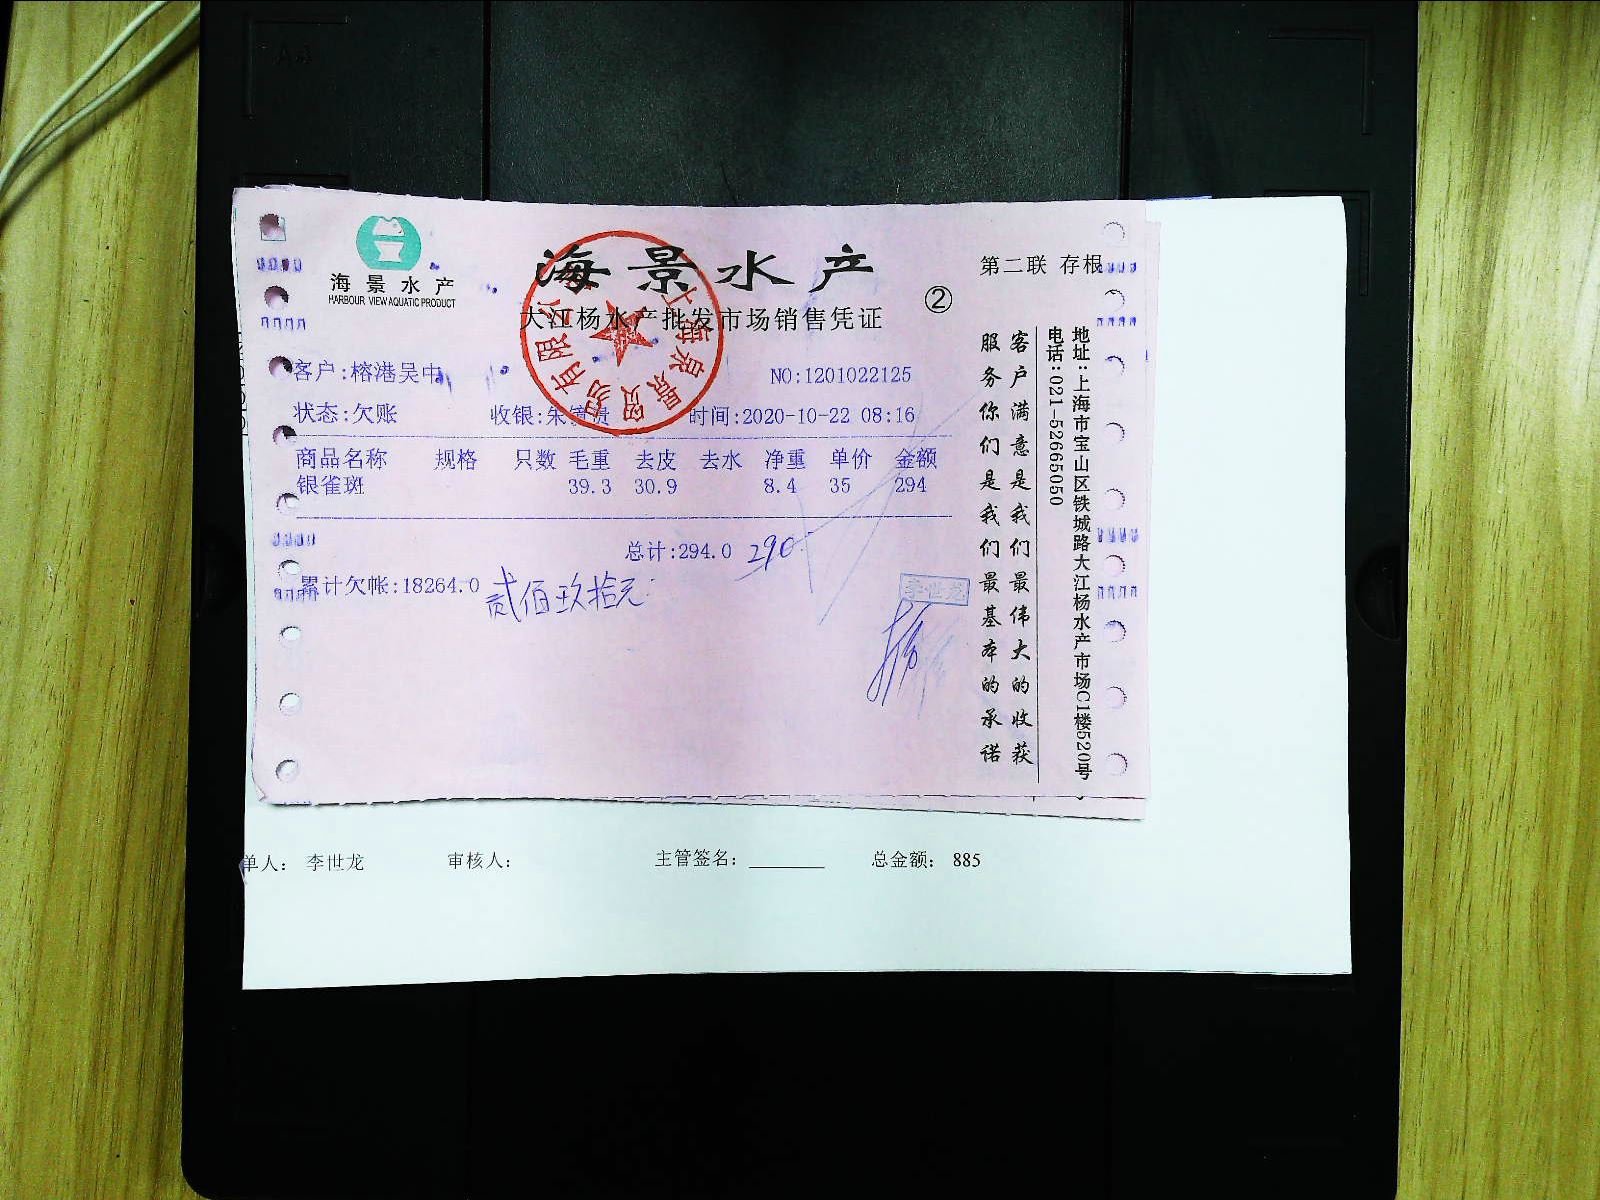 海景水产
HARBOUR VIEW AQUATIC PRODUCT
海景水产
大江杨水产批发市场销售凭证
②
第二联 存根
客户:榕港吴中
NO:1201022125
状态:欠账 收银:朱 贵 时间:2020-10-22 08:16
商品名称 规格 只数 毛重 去皮 去水 净重 单价 金额
银雀斑 39.3 30.9 8.4 35 294
总计:294.0 290
累计欠帐:18264.0 贰佰玖拾元
李世龙
客户满意是我们最伟大的收获
服务你们是我们最基本的承诺
地址:上海市宝山区铁城路大江杨水产市场C1楼520号
电话:021-52665050
单人: 李世龙 审核人: 主管签名: 总金额: 885